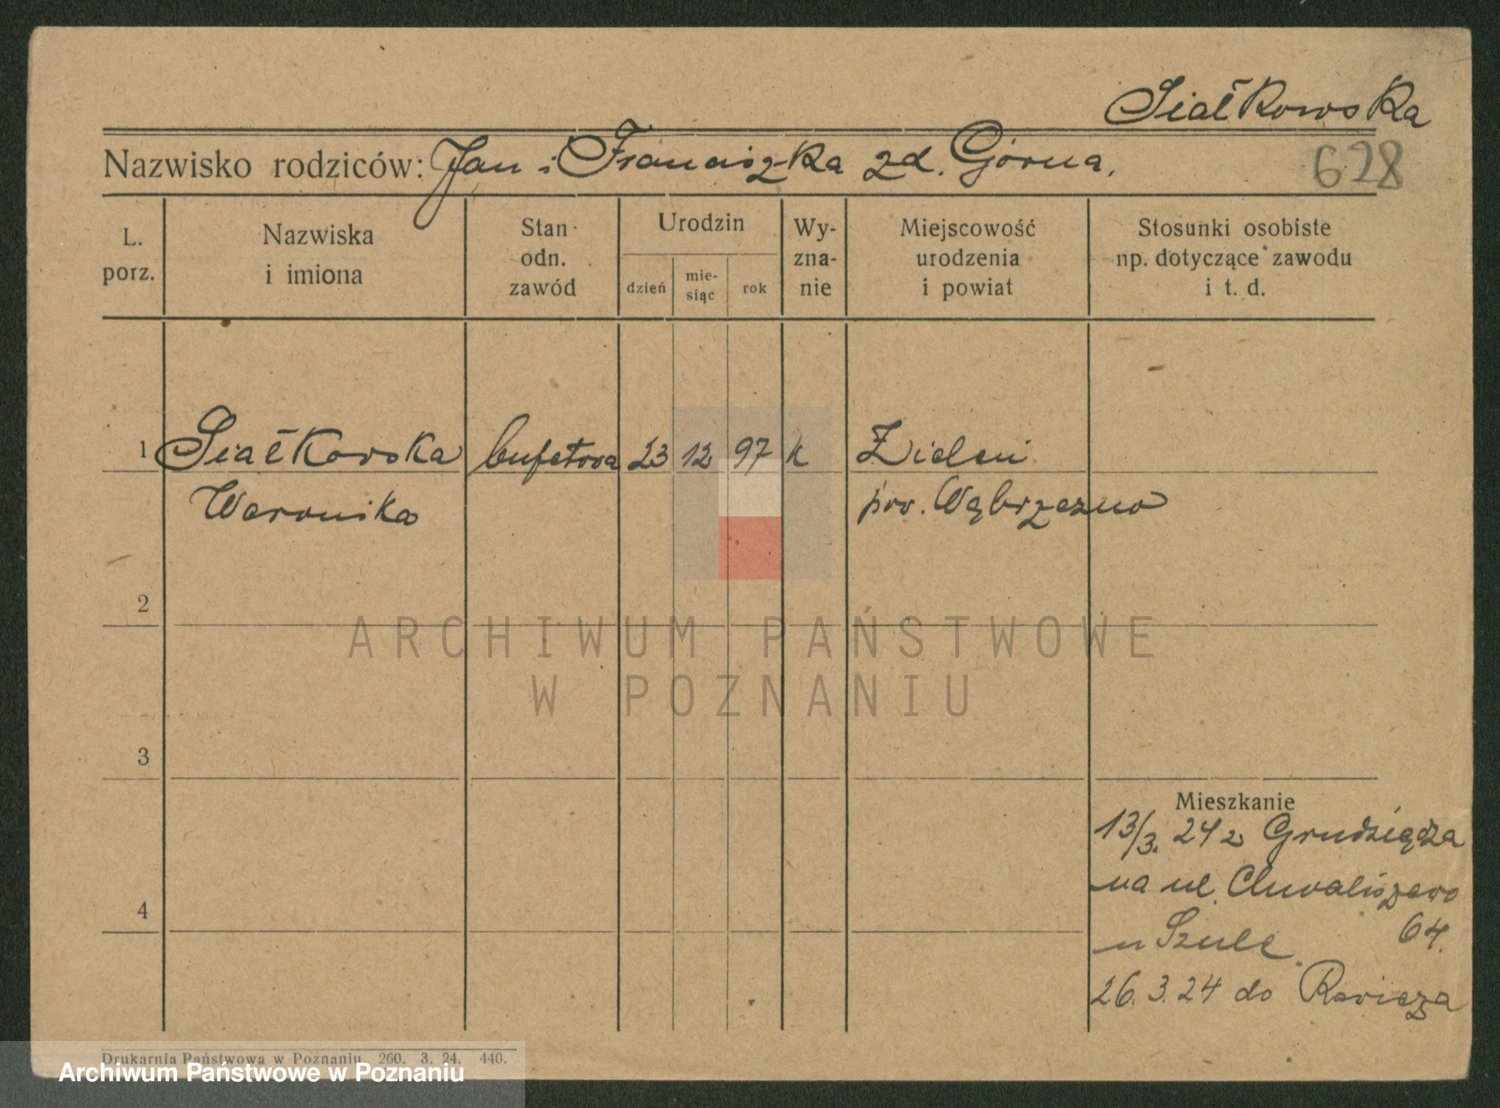 Siałkowska
Nazwisko rodziców: Jan i Franciszka zd. Górna.
628
L. porz.
Nazwiska i imiona
Stan odn. zawód
Urodzin
dzień
mie-
siąc
rok
Wy-
zna-
nie
Miejscowość urodzenia i powiat
Stosunki osobiste
np. dotyczące zawodu
i t. d.
1 Siałkowska bufetowa 23 12 97 k Zieleń
Weronika pow. Wąbrzezno
2
ARCHIWUM PAŃSTWOWE
W POZNANIU
3
Mieszkanie
13/3. 24 z Grudziądza
na ul. Chwaliszewo
64.
u Szulc.
4
26. 3. 24 do Rawicza
Drukarnia Państwowa w Poznaniu 260. 3. 24. 440.
Archiwum Państwowe w Poznaniu